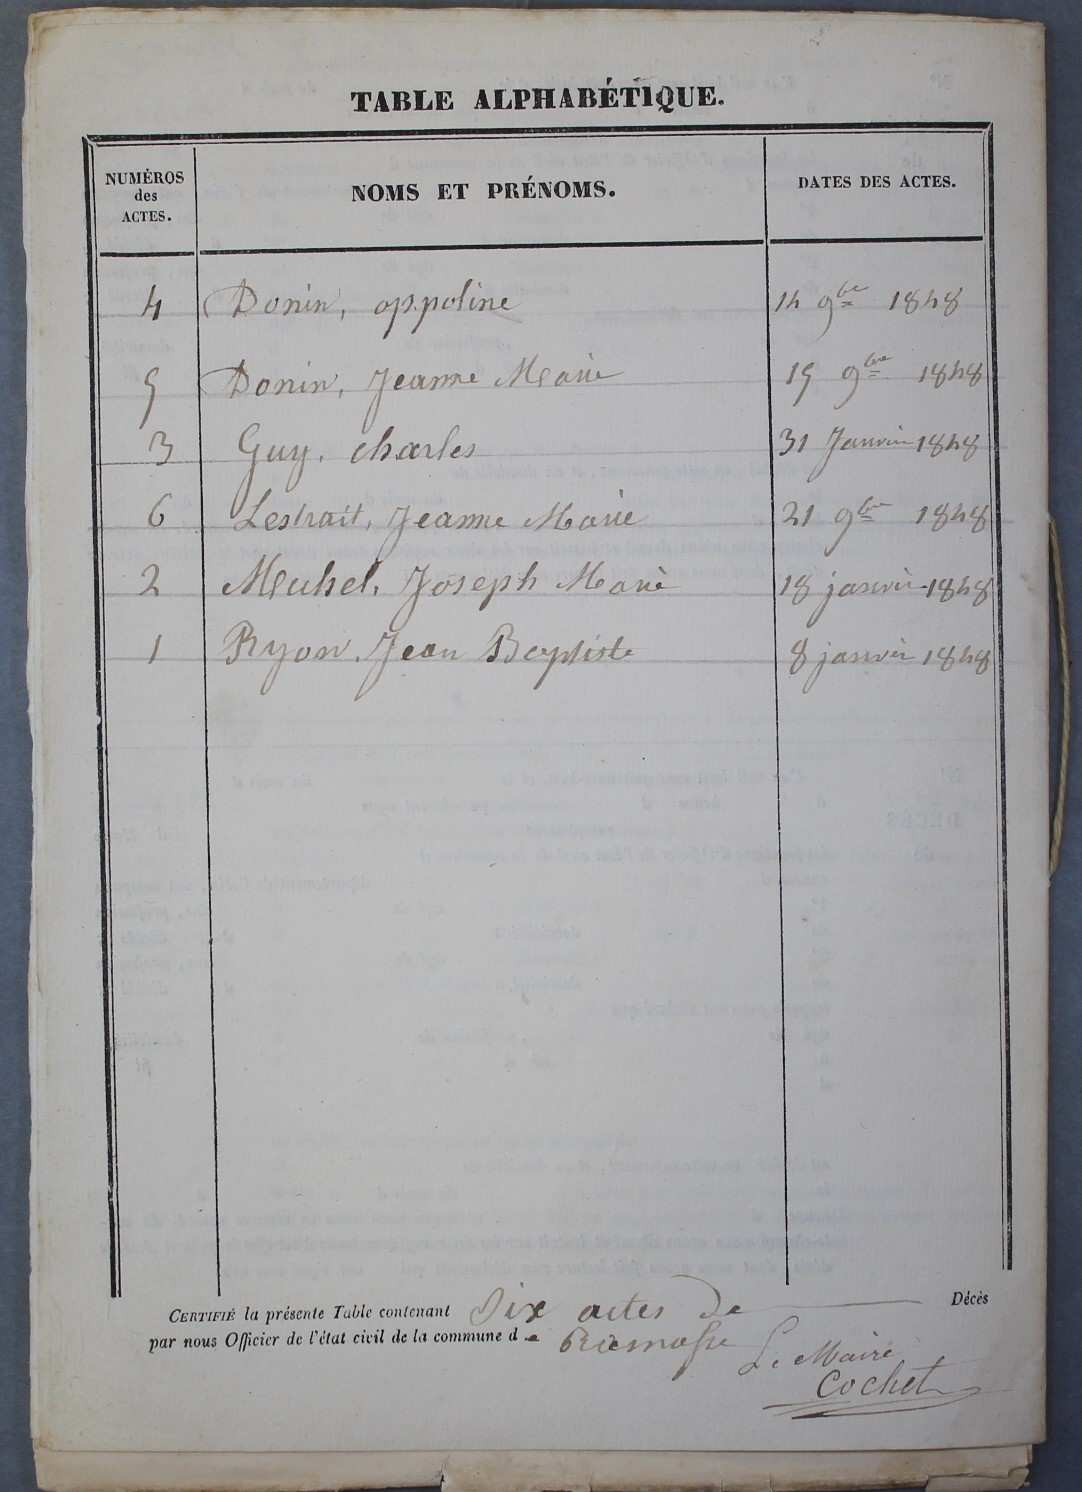 TABLE ALPHABÉTIQUE.
NUMÉROS des ACTES. NOMS ET PRÉNOMS. DATES DES ACTES.
4 Donin, appoline 14 9bre 1848
5 Donin, Jeanne Marie 15 9bre 1848
3 Guy, charles 31 Janvier 1848
6 Lestrait, Jeanne Marie 21 9bre 1848
2 Michel, Joseph Marie 18 janvier 1848
1 Ryon, Jean Baptiste 8 janvier 1848
CERTIFIÉ la présente Table contenant Six actes de Décès
par nous Officier de l'état civil de la commune de
Le Maire
Cochet